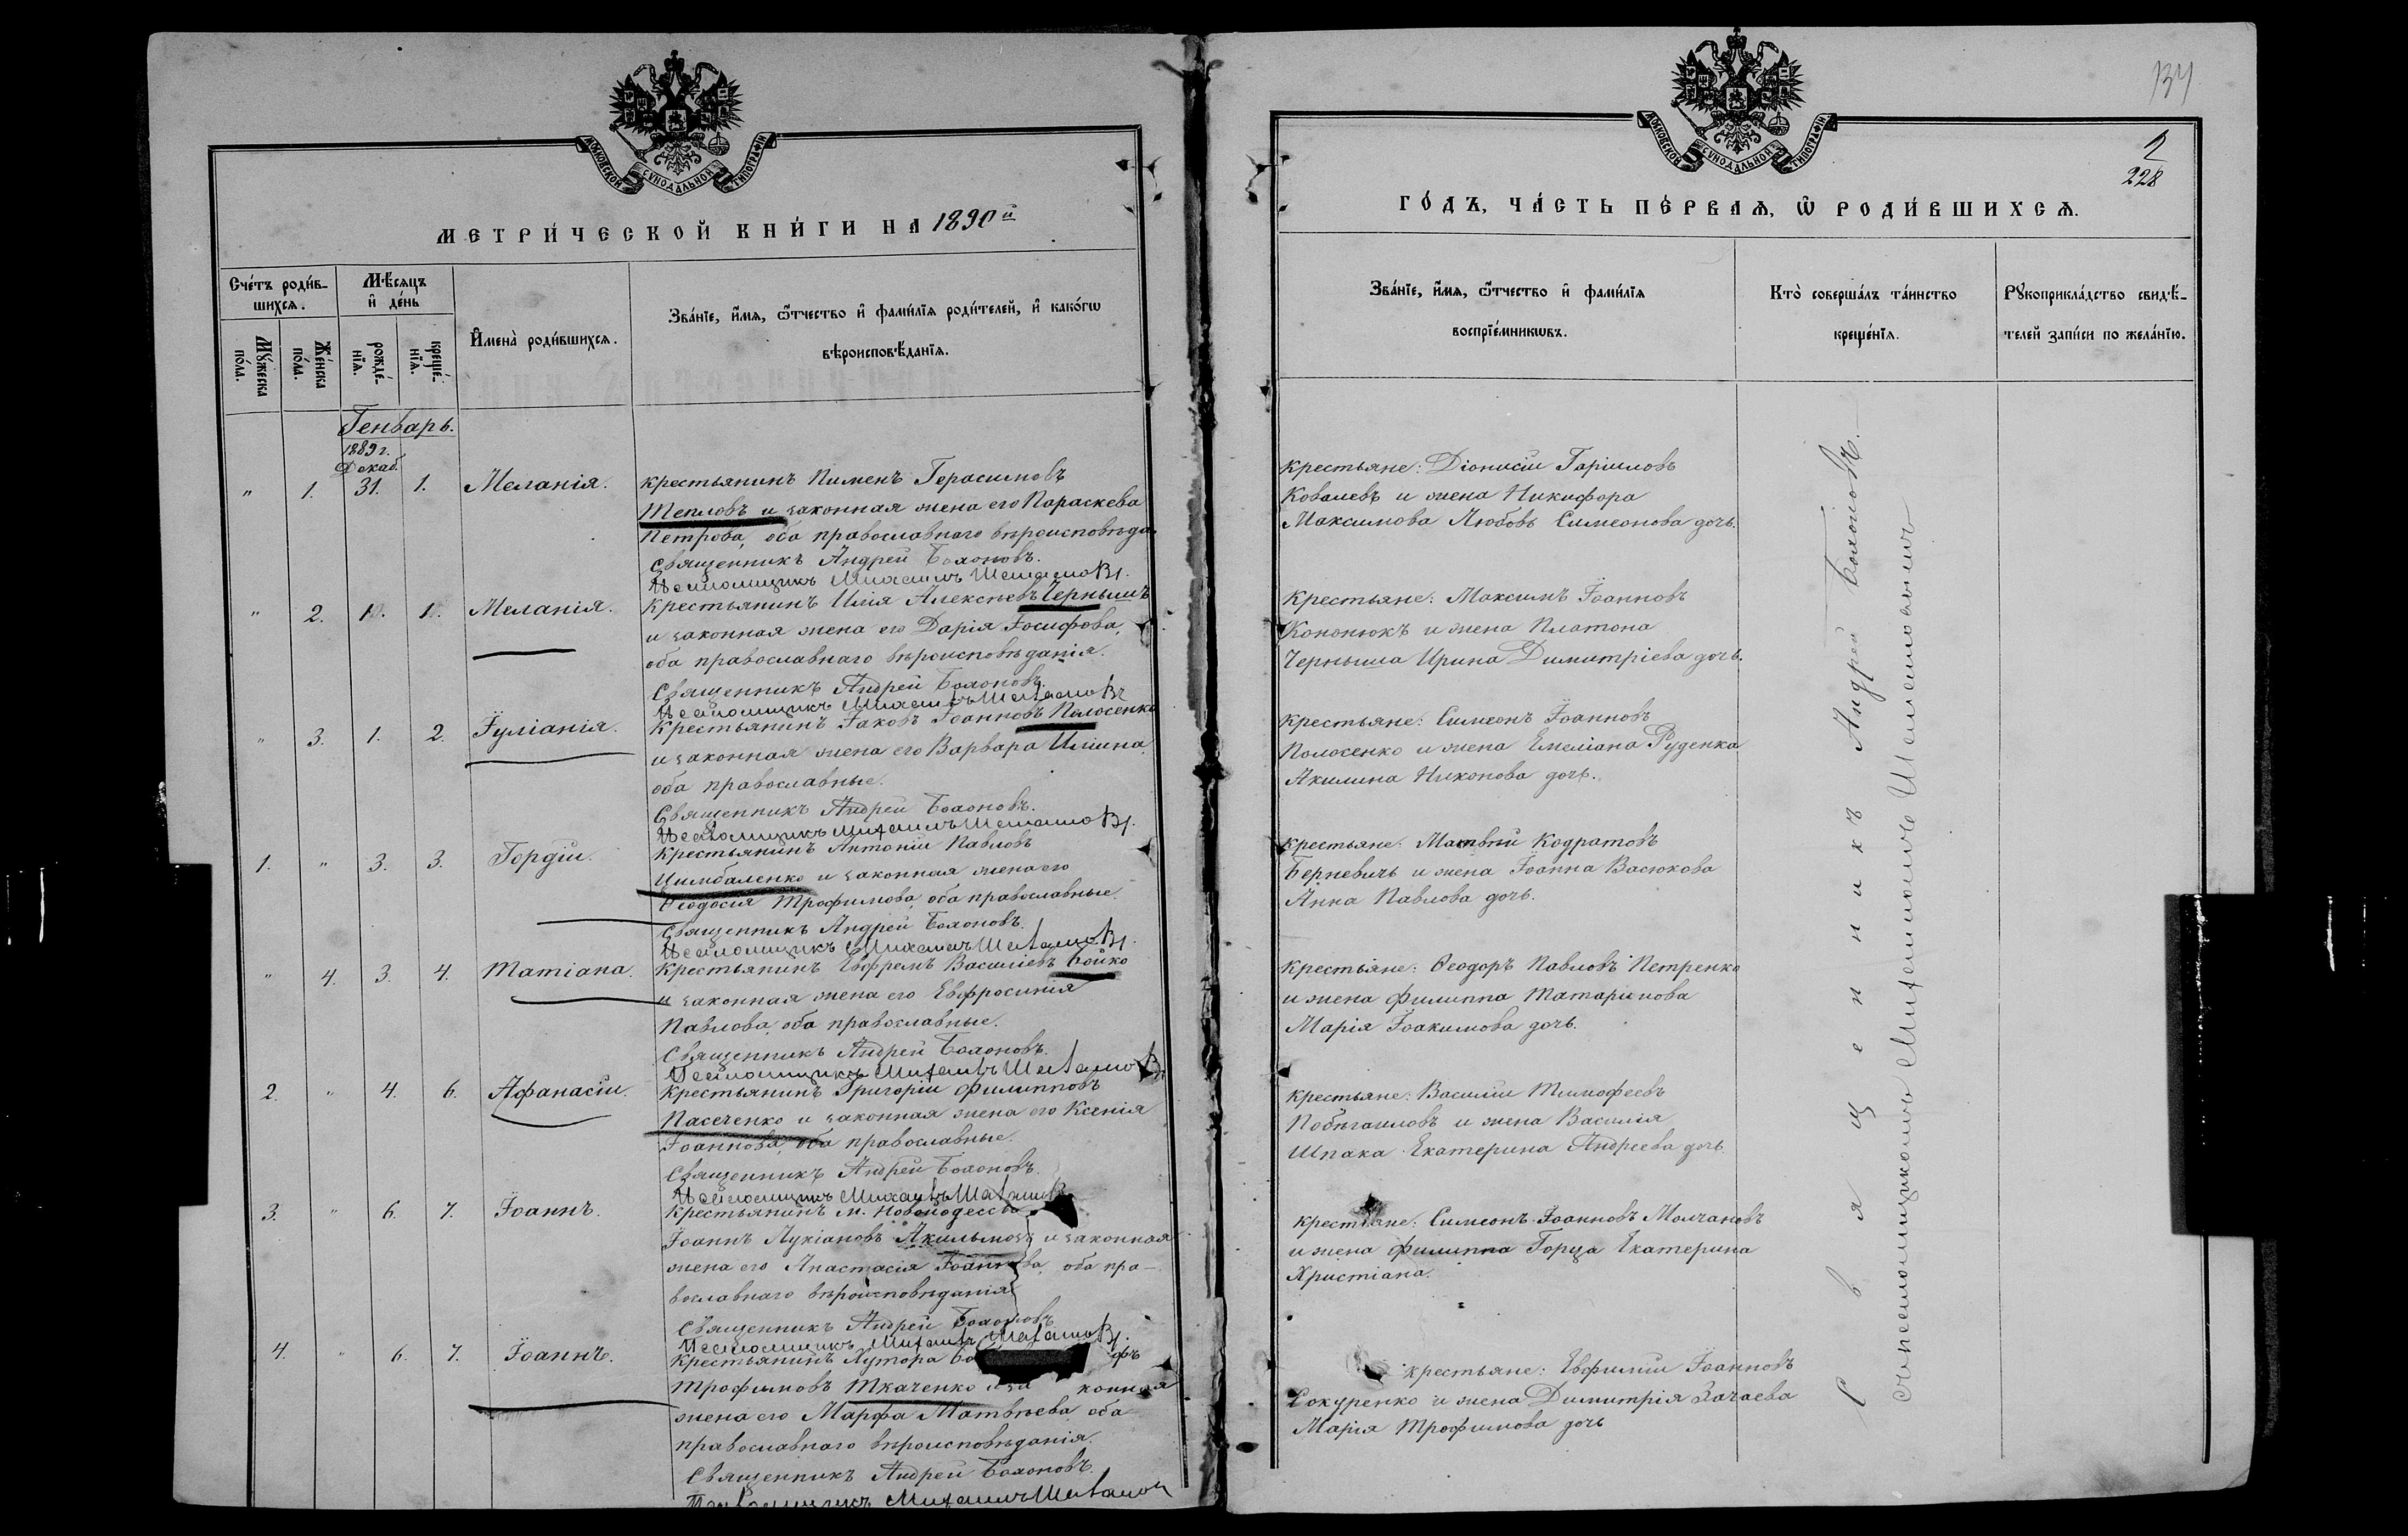 МОСКОВСКОЙ СѴНОДАЛЬНОЙ ТИПОГРАФІИ
МЕТРИ́ЧЕСКОЙ КНИ́ГИ НА 1890й
Сче́тъ роди́в-
шихсѧ.
Мѣ́сѧцъ
и҆ де́нь
Мꙋ́жеска
по́ла.
Же́нска
по́ла.
рожде́-
нїѧ.
креще́-
нїѧ.
И҆мена̀ роди́вшихсѧ.
Зва́нїе, и҆́мѧ, ѻ҆́тчество и҆ фами́лїѧ роди́телей, и҆ како́гѡ
вѣроисповѣ́данїѧ.
Генварь.
1889 г.
Декаб.
" 1. 31. 1. Меланія. крестьянинъ Пименъ Герасимовъ
Тепловъ и законная жена его Параскева
Петрова, оба православнаго вѣроисповѣда
Священникъ Андрей
Псаломщикъ Михаилъ
" 2. 1. 1. Меланія. Крестьянинъ Илія Алексѣевъ Чернышъ
и законная жена его Дарія Іосифова,
оба православнаго вѣроисповѣданія.
Священникъ Андрей
Псаломщикъ Михаилъ
" 3. 1. 2. Іуліанія. Крестьянинъ Іаковъ Іоанновъ Полосенко
и законная жена его Варвара Иліина,
оба православные.
Священникъ Андрей
Псаломщикъ Михаилъ
1. " 3. 3. Гордій. Крестьянинъ Антоній Павловъ
Цимбаленко и законная жена его
Ѳеодосія Трофимова, оба православные.
Священникъ Андрей
Псаломщикъ Михаилъ
" 4. 3. 4. Татіана. Крестьянинъ Евфремъ Василіевъ Бойко
и законная жена его Евфросинія
Павлова, оба православные.
Священникъ Андрей
Псаломщикъ Михаилъ
2. " 4. 6. Афанасій. Крестьянинъ Григорій Филипповъ
Пасеченко и законная жена его Ксенія
Іоаннова, оба православные.
Священникъ Андрей
Псаломщикъ Михаилъ
3. " 6. 7. Іоаннъ. Крестьянинъ м. Новойодессы
Іоаннъ Лукіановъ Акильмовъ и законная
жена его Анастасія Іоаннова, оба пра-
вославнаго вѣроисповѣданія
Священникъ Андрей
Псаломщикъ Михаилъ
4. " 6. 7. Іоаннъ. Крестьянинъ Хутора
Трофимовъ Ткаченко и законная
жена его Марфа Матвѣева, оба
православнаго вѣроисповѣданія.
Священникъ Андрей
Псаломщикъ Михаилъ
134
МОСКОВСКОЙ СѴНОДАЛЬНОЙ ТИПОГРАФІИ
228
ГО́ДЪ, ЧА́СТЬ ПЕ́РВАѦ, Ѡ҆ РОДИ́ВШИХСѦ.
Зва́нїе, и҆́мѧ, ѻ҆́тчество и҆ фами́лїѧ
воспрїе́мникѡвъ.
Кто̀ соверша́лъ та́инство
креще́нїѧ.
Рꙋкоприкла́дство свидѣ́-
телей запи́си по жела́нїю.
крестьяне: Діонисій
Ковалевъ и жена Никифора
Максимова Любовь Симеонова дочь.
Крестьяне: Максимъ Іоанновъ
Кононюкъ и жена Платона
Черныша Ирина Димитріева дочь.
крестьяне: Симеонъ Іоанновъ
Полосенко и жена Емеліана Руденка
Акилина Никонова дочь.
крестьяне: Матвѣй Кодратовъ
Берневичъ и жена Іоанна Васюкова
Анна Павлова дочь.
крестьяне: Ѳеодоръ Павловъ Петренко
и жена Филиппа
Марія Іоакимова дочь.
крестьяне: Василій Тимофеевъ
Побѣгаиловъ и жена Василія
Шпака Екатерина Андреева дочь.
крестьяне: Симеонъ Іоанновъ Молчановъ
и жена Филиппа Горца Екатерина
Христіана.
крестьяне: Евфимій Іоанновъ
Сокуренко и жена Димитрія Зачаева
Марія Трофимова дочь
Священникъ Андрей
съ псаломщикомъ Михаиломъ